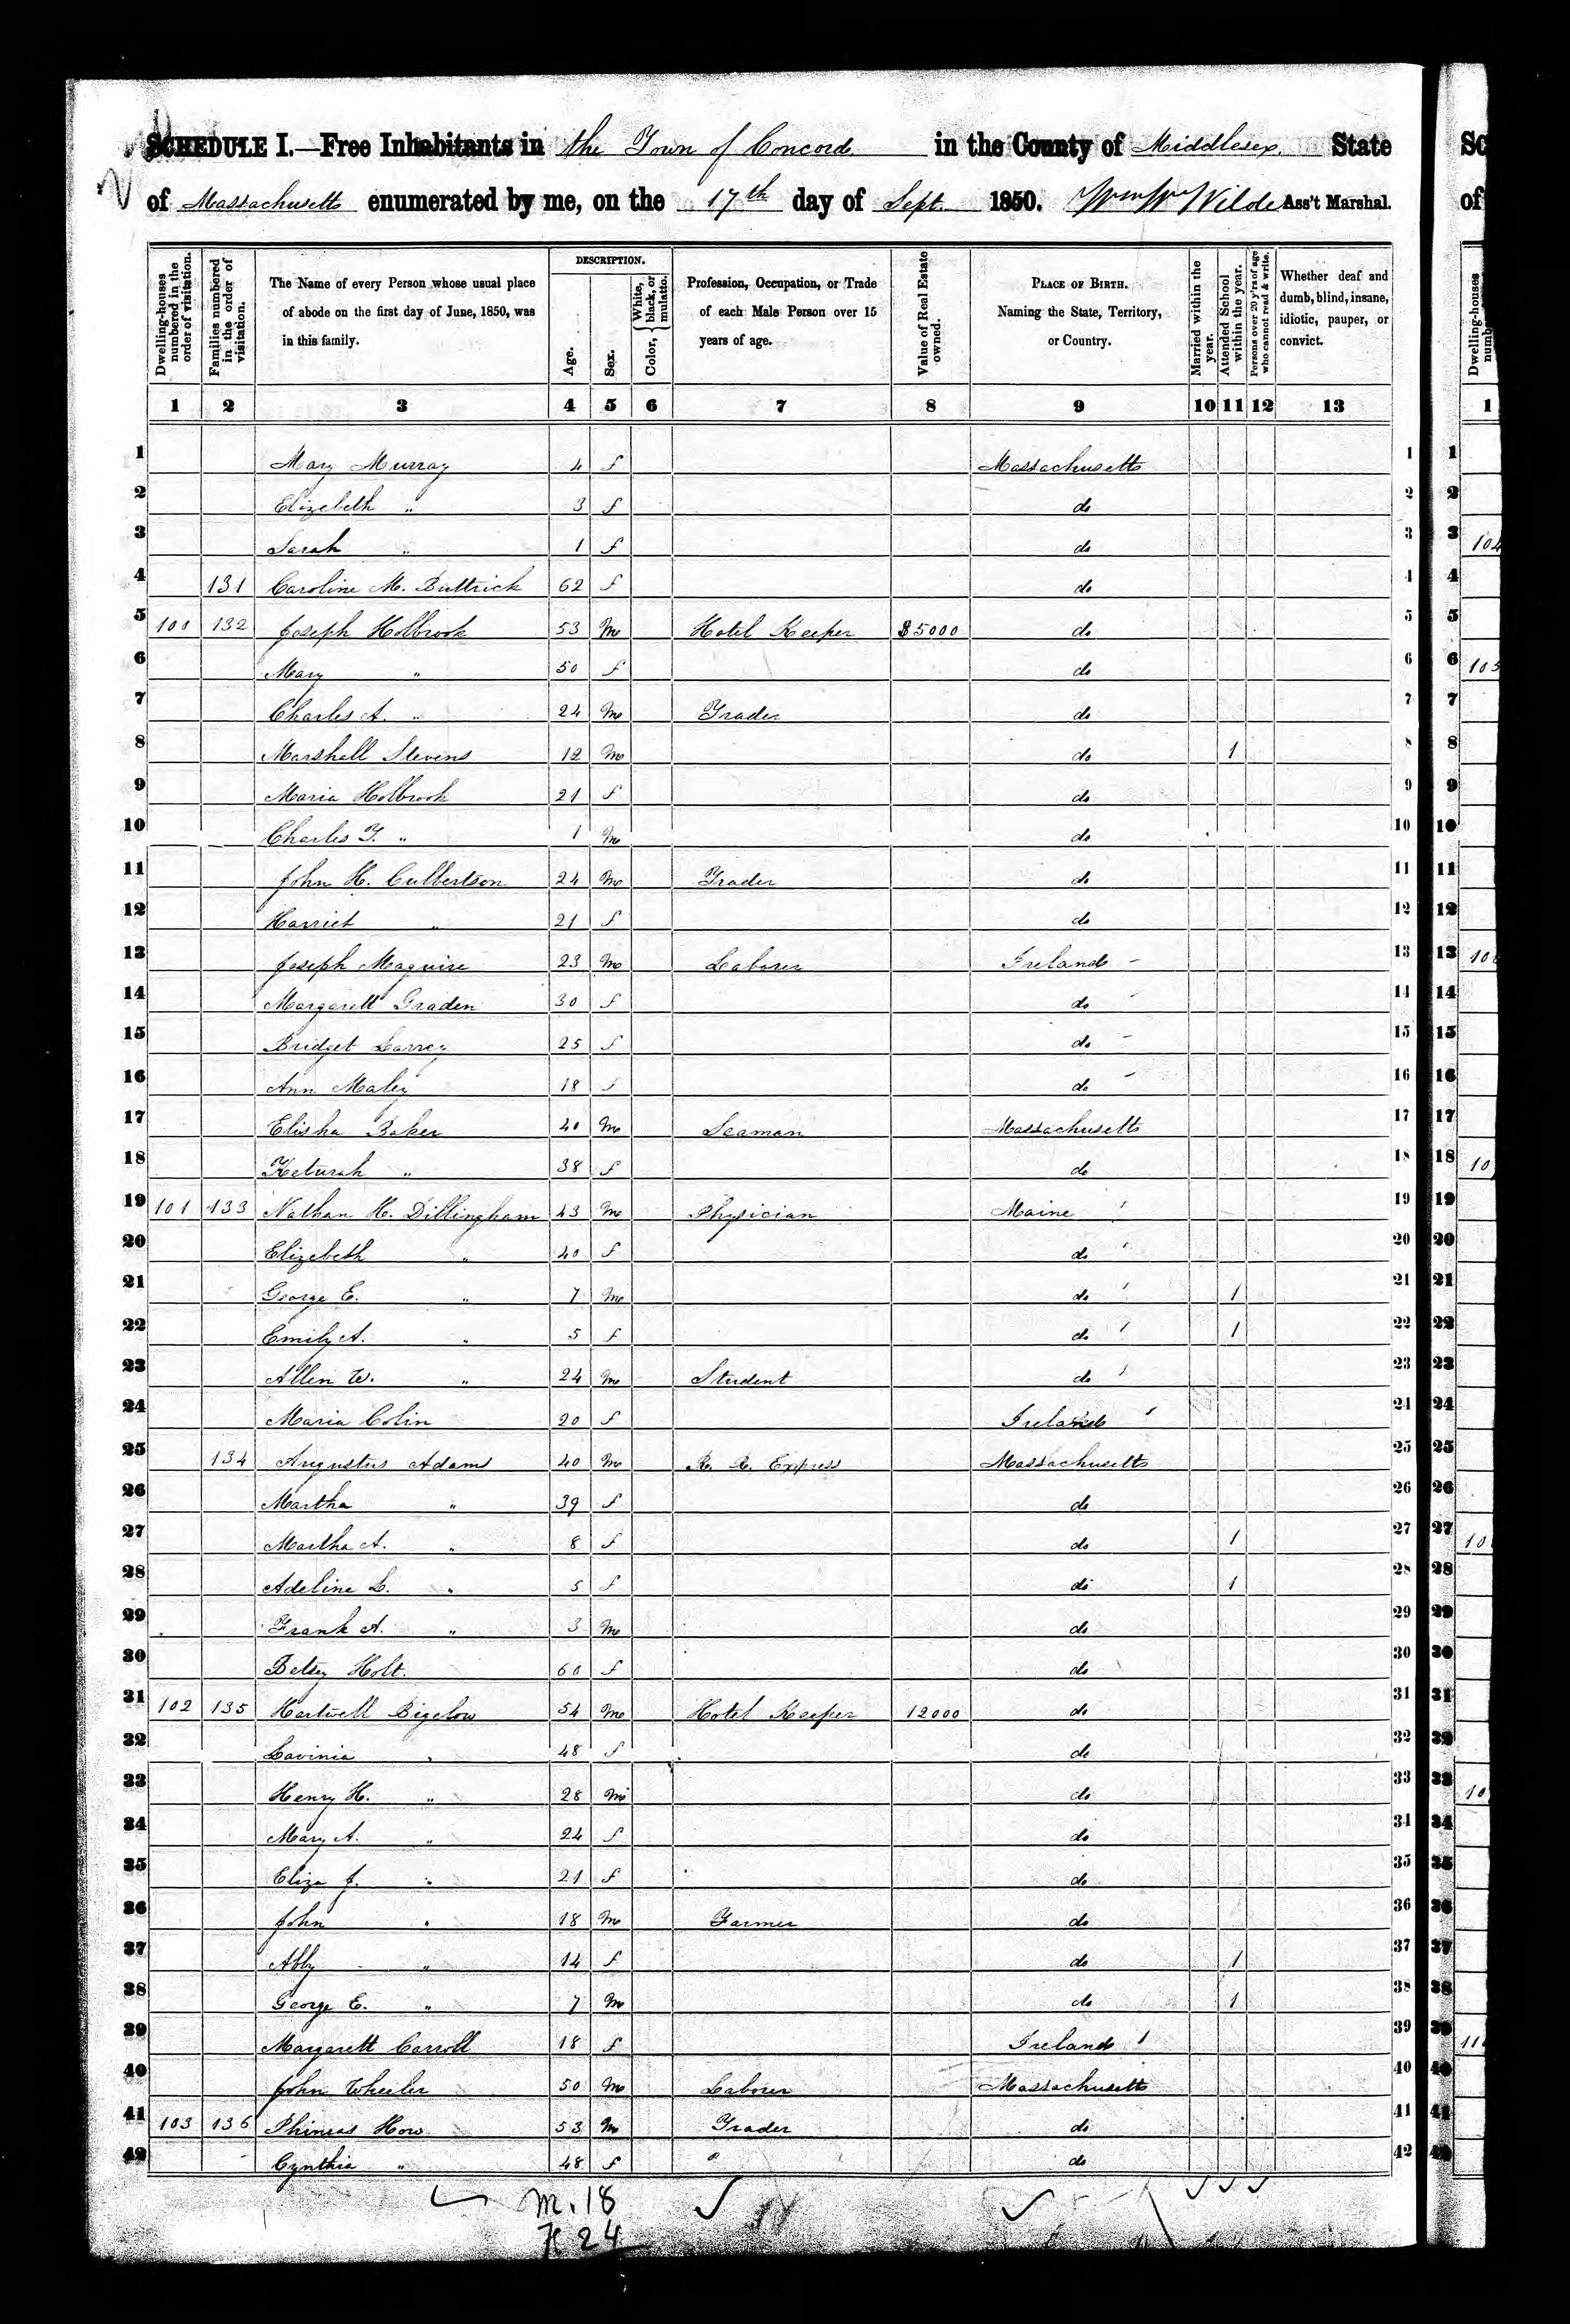 SCHEDULE I.—Free Inhabitants in the Town of Concord in the County of Middlesex State
of Massachusetts enumerated by me, on the 17th day of Sept. 1850. Wm W Wilde Ass't Marshal.
Dwelling-houses numbered in the order of visitation.
Families numbered in the order of visitation.
The Name of every Person whose usual place of abode on the first day of June, 1850, was in this family.
DESCRIPTION.
Age.
Sex.
Color, { White, black, or mulatto.
Profession, Occupation, or Trade of each Male Person over 15 years of age.
Value of Real Estate owned.
PLACE OF BIRTH. Naming the State, Territory, or Country.
Married within the year.
Attended School within the year.
Persons over 20 y'rs of age who cannot read & write.
Whether deaf and dumb, blind, insane, idiotic, pauper, or convict.
1 2 3 4 5 6 7 8 9 10 11 12 13
1 Mary Murray 4 f Massachusetts 1
2 Elizebeth " 3 f do 2
3 Sarah " 1 f do 3
4 131 Caroline M. Buttrick 62 f do 4
5 100 132 Joseph Holbrook 53 m Hotel Keeper $5000 do 5
6 Mary " 50 f do 6
7 Charles A. " 24 m Trader do 7
8 Marshall Stevens 12 m do 1 8
9 Maria Holbrook 21 f do 9
10 Charles T. " 1 m do 10
11 John H. Culbertson 24 m Trader do 11
12 Harriet " 21 f do 12
13 Joseph Maguire 23 m Laborer Ireland 13
14 Margarett Graden 30 f do 14
15 Bridget Larrey 25 f do 15
16 Ann Maley 18 f do 16
17 Elisha Baker 40 m Seaman Massachusetts 17
18 Keturah " 38 f do 18
19 101 133 Nathan H. Dillingham 43 m Physician Maine 19
20 Elizebeth " 40 f do 20
21 George E. " 7 m do 1 21
22 Emily A. " 5 f do 1 22
23 Allen W. " 24 m Student do 23
24 Maria Colin 20 f Ireland 24
25 134 Augustus Adams 40 m R. R. Express Massachusetts 25
26 Martha " 39 f do 26
27 Martha A. " 8 f do 1 27
28 Adeline L. " 5 f do 1 28
29 Frank A. " 3 m do 29
30 Betsey Holt. 60 f do 30
31 102 135 Hartwell Bigelow 54 m Hotel Keeper 12000 do 31
32 Lavinia " 48 f do 32
33 Henry H. " 28 m do 33
34 Mary A. " 24 f do 34
35 Eliza J. " 21 f do 35
36 John " 18 m Farmer do 36
37 Abby " 14 f do 1 37
38 George E. " 7 m do 1 38
39 Margarett Carroll 18 f Ireland 39
40 John Wheeler 50 m Laborer Massachusetts 40
41 103 136 Phineas How 53 m Trader do 41
42 Cynthia " 48 f " do 42
m. 18
24